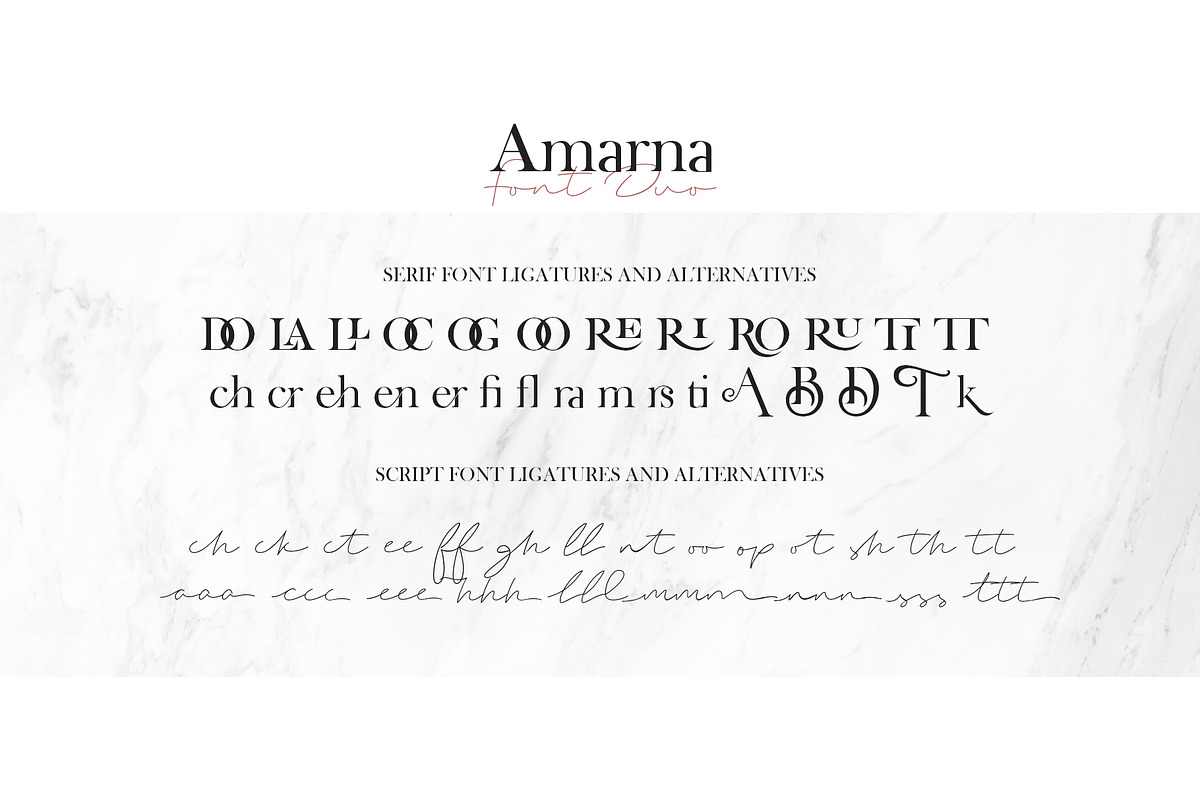 Amarna
Font Duo
SERIF FONT LIGATURES AND ALTERNATIVES
DO LA LL OC OG OO RE RI RO RU TI TT
ch cr eh en er fi fl ra rn rs ti A B D T k
SCRIPT FONT LIGATURES AND ALTERNATIVES
ch ck ct ee ff gh ll nt oo op ot sh th tt
aaa ccc eee hhh lll mmm nnn sss ttt